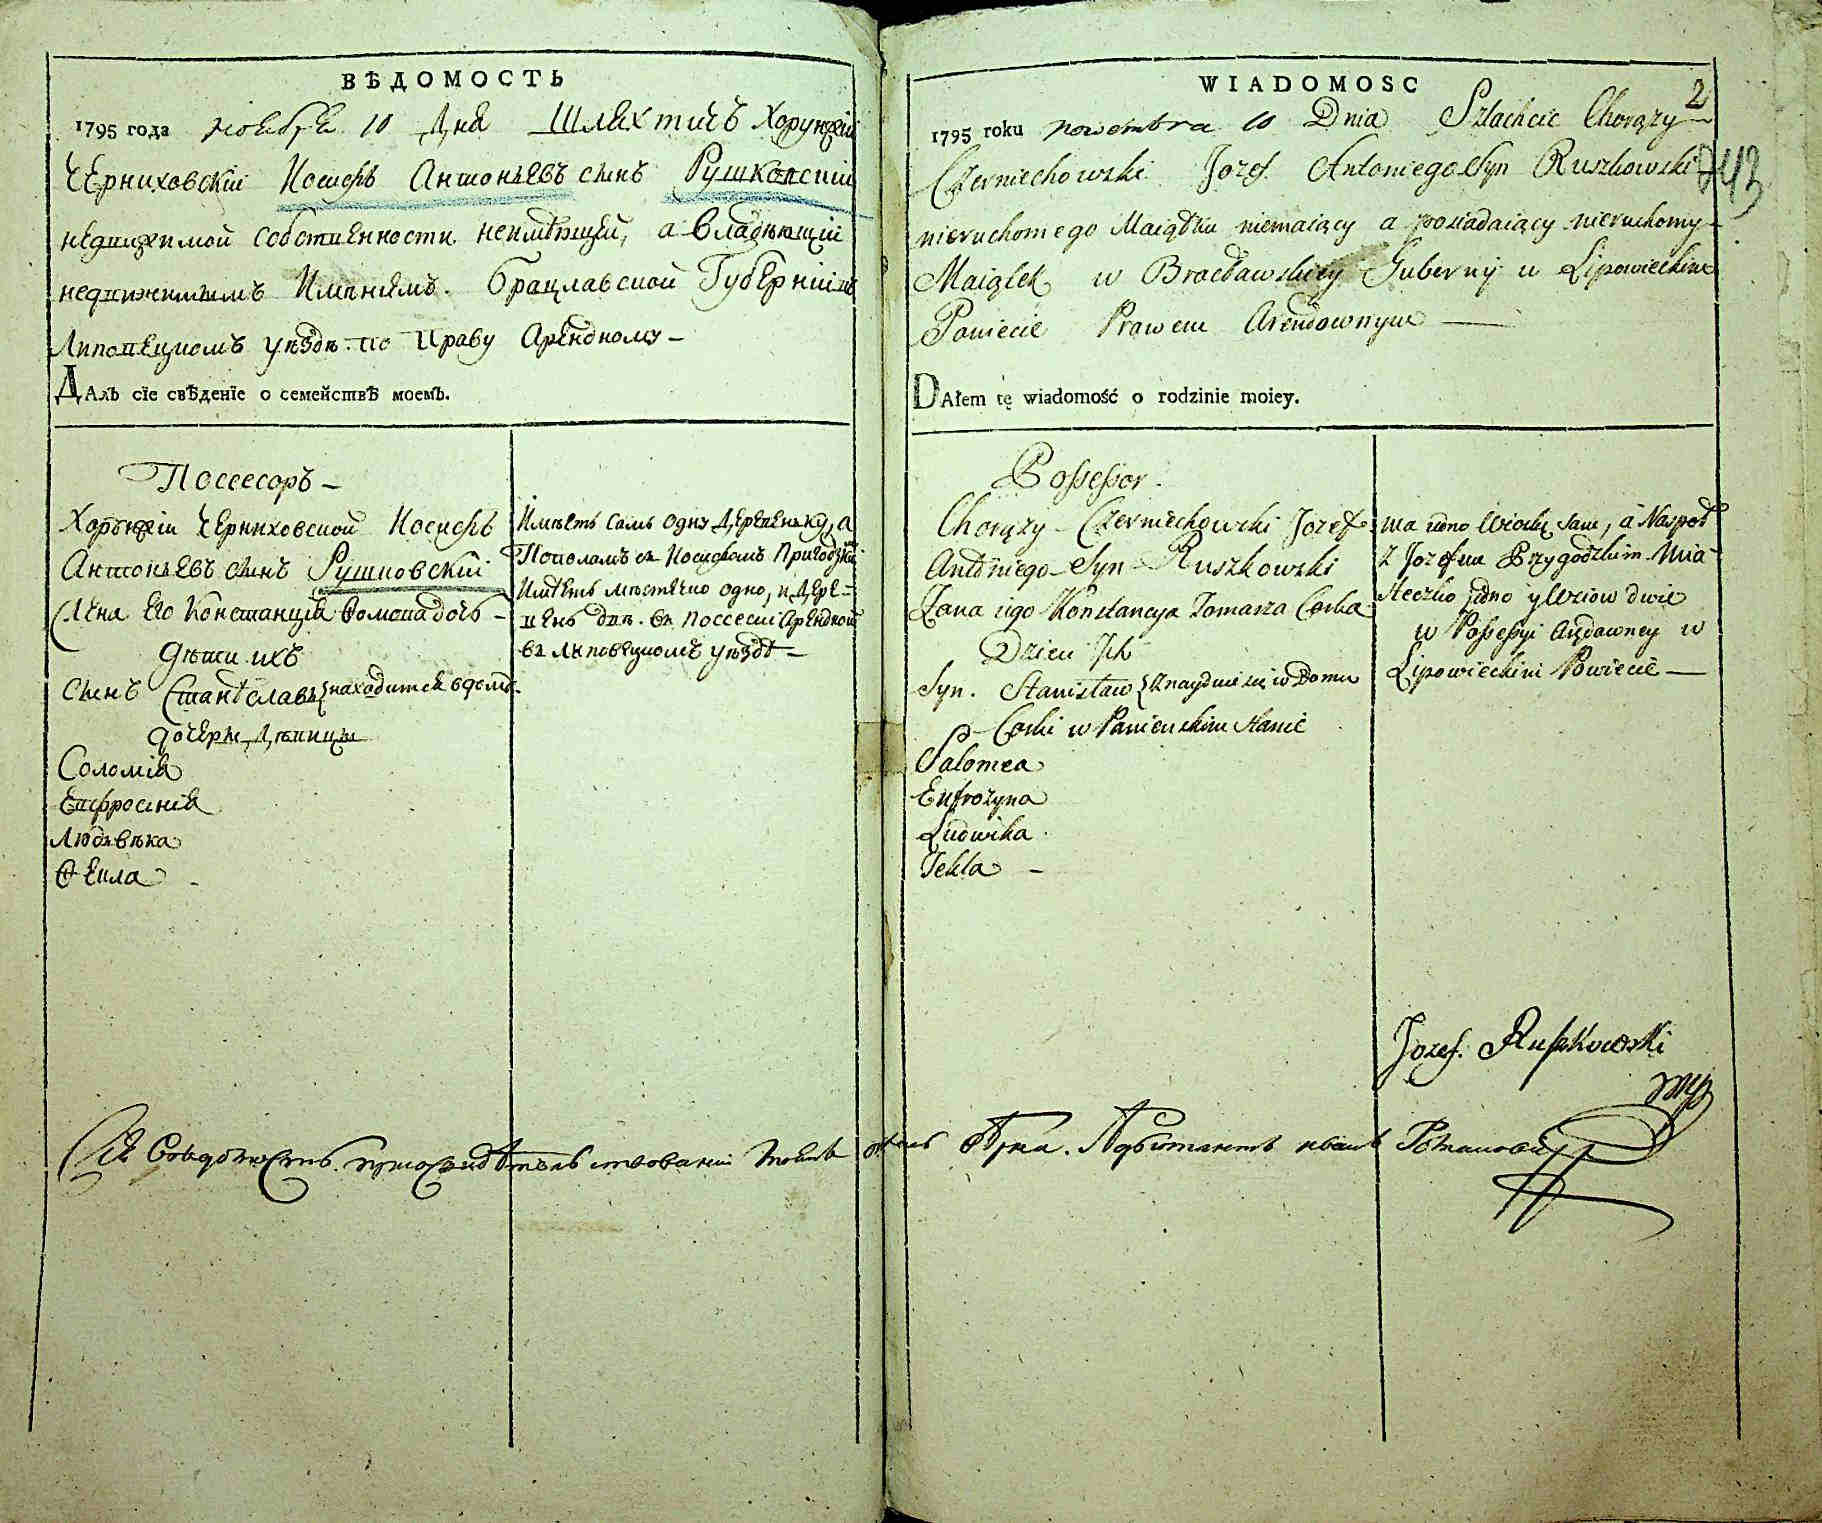 ВѢДОМОСТЬ
1795 года ноября 10 Дня Шляхтичъ Хорунжій
Черниховскій Иосифъ Антоньевъ сынъ Рушковскій
недвижимой собственности неимѣющей, а владѣющій
недвижимымъ Имѣніямъ. Брацлавской Губерніи въ
Липовецкомъ уѣздѣ по Праву Арендному –
ДАлъ сїе свѣденїе о семействѣ моемъ.
Поссесоръ –
Хорунжій Черниховской Иосифъ
Антоньевъ сынъ Рушковскій
Жена Его Констанція Томаша дочь –
Дѣти ихъ
сынъ Станіславъ находится в домѣ
дочери, дѣвицы
Соломія
Еифросинія
Людвѣка
Ѳекла –
Имѣетъ самъ одну Деревеньку, а
Пополамъ съ Иосифомъ Пригодзкимъ
Имѣетъ мѣстечко одно, и Дере=
вень двѣ. въ поссесіи Арендной
въ Липовецкомъ уѣздѣ –
WIADOMOSC
2
1795 roku nowembra 10 Dnia Szlachcic Chorąży
Czerniechowski Jozef Antoniego Syn Ruszkowski
743
nieruchomego Maiątku niemaiący a posiadaiący nieruchomy
Maiątek w Bracławskiey Guberny w Lipowieckim
Powiecie Prawem Arendownym –
DAłem tę wiadomość o rodzinie moiey.
Possessor.
Chorąży Czerniechowski Jozef
Antoniego Syn Ruszkowski
Żona iego Konstancya Tomasza Corka
Dzieci Ich
Syn. Stanisław Znayduie się w Domu
Corki w Panienskim stanie
Salomea
Eufrozyna
Ludwika
Tekla –
ma iedno Wioskę sam, a Naspoł
z Jozefem Przygodzkim Mia-
steczko iedno y Wsiow dwie
w Possessyi Arędowney w
Lipowieckim Powiecie –
Jozef. Ruszkowski
mp
Сія